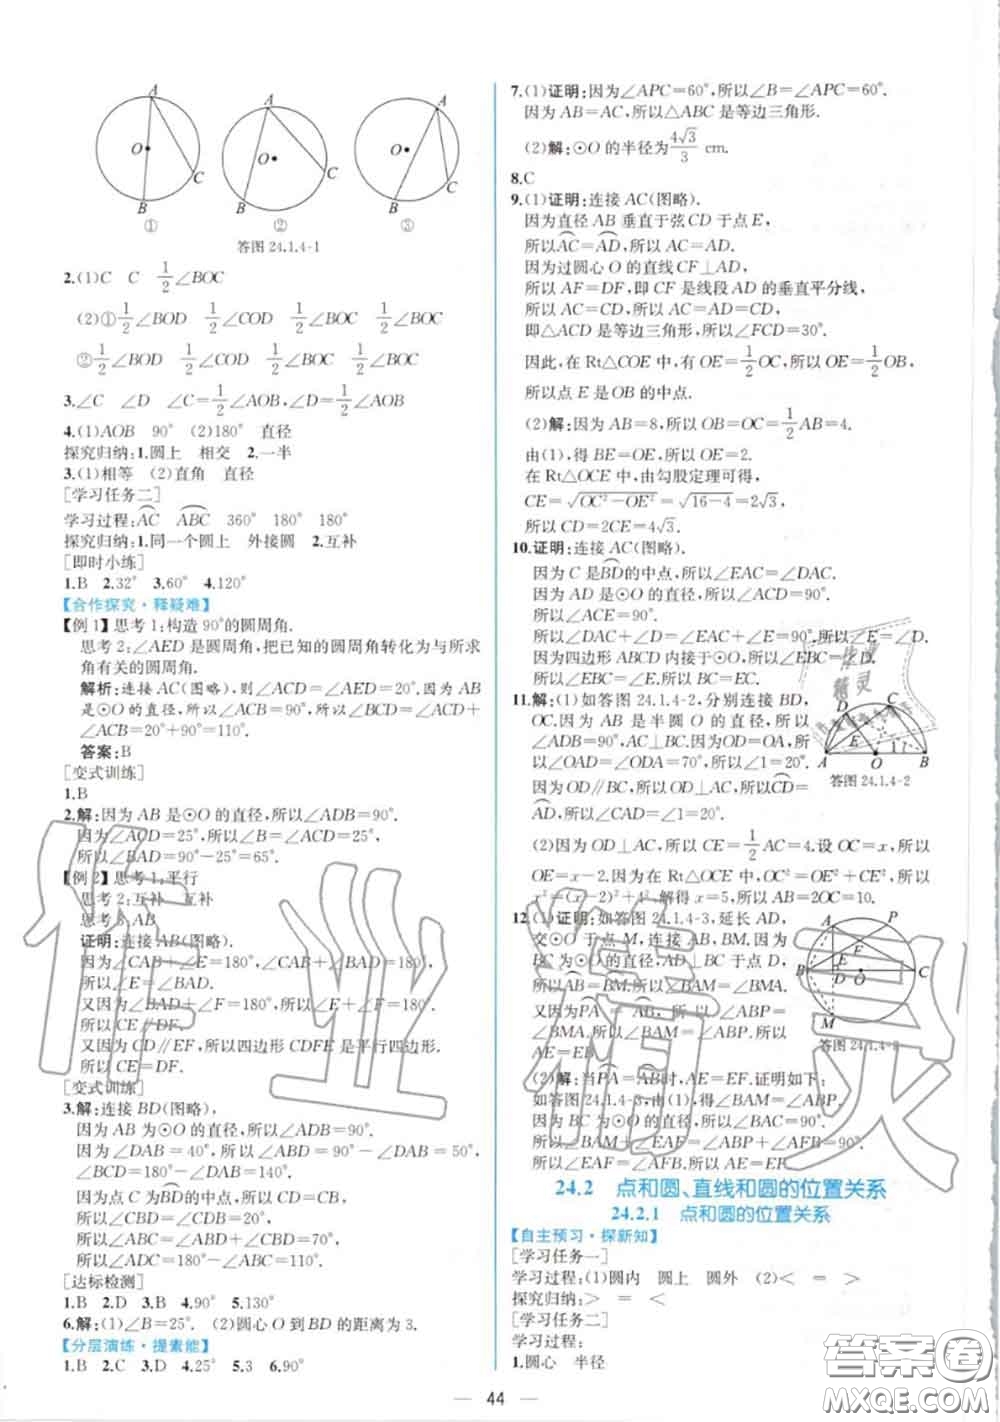 A
O
C
B
①
A
O
C
B
②
A
O
C
B
③
答图 24.1.4-1
2.(1)C C 1/2∠BOC
(2)①1/2∠BOD 1/2∠COD 1/2∠BOC 1/2∠BOC
②1/2∠BOD 1/2∠COD 1/2∠BOC 1/2∠BOC
3.∠C ∠D ∠C=1/2∠AOB,∠D=1/2∠AOB
4.(1)AOB 90° (2)180° 直径
探究归纳:1.圆上 相交 2.一半
3.(1)相等 (2)直角 直径
[学习任务二]
学习过程:AC ABC 360° 180° 180°
探究归纳:1.同一个圆上 外接圆 2.互补
[即时小练]
1.B 2.32° 3.60° 4.120°
【合作探究·释疑难】
【例1】思考1:构造90°的圆周角.
思考2:∠AED是圆周角,把已知的圆周角转化为与所求
角有关的圆周角.
解析:连接AC(图略),则∠ACD=∠AED=20°.因为AB
是⊙O的直径,所以∠ACB=90°,所以∠BCD=∠ACD+
∠ACB=20°+90°=110°.
答案:B
[变式训练]
1.B
2.解:因为AB是⊙O的直径,所以∠ADB=90°.
因为∠ACD=25°,所以∠B=∠ACD=25°.
所以∠BAD=90°-25°=65°.
【例2】思考1:平行
思考2:互补 互补
思考3:AB
证明:连接AB(图略).
因为∠CAB+∠E=180°,∠CAB+∠BAD=180°,
所以∠E=∠BAD.
又因为∠BAD+∠F=180°,所以∠E+∠F=180°.
所以CE∥DF.
又因为CD∥EF,所以四边形CDFE是平行四边形.
所以CE=DF.
[变式训练]
3.解:连接BD(图略),
因为AB为⊙O的直径,所以∠ADB=90°.
因为∠DAB=40°,所以∠ABD=90°-∠DAB=50°.
∠BCD=180°-∠DAB=140°.
因为点C为BD的中点,所以CD=CB.
所以∠CBD=∠CDB=20°.
所以∠ABC=∠ABD+∠CBD=70°.
所以∠ADC=180°-∠ABC=110°.
[达标检测]
1.B 2.D 3.B 4.90° 5.130°
6.解:(1)∠B=25°. (2)圆心O到BD的距离为3.
【分层演练·提素能】
1.B 2.C 3.D 4.25° 5.3 6.90°
7.(1)证明:因为∠APC=60°,所以∠B=∠APC=60°.
因为AB=AC,所以△ABC是等边三角形.
(2)解:⊙O的半径为4√3/3 cm.
8.C
9.(1)证明:连接AC(图略).
因为直径AB垂直于弦CD于点E,
所以AC=AD,所以AC=AD.
因为过圆心O的直线CF⊥AD,
所以AF=DF,即CF是线段AD的垂直平分线,
所以AC=CD,所以AC=AD=CD.
即△ACD是等边三角形,所以∠FCD=30°.
因此,在Rt△COE中,有OE=1/2OC,所以OE=1/2OB,
所以点E是OB的中点.
(2)解:因为AB=8,所以OB=OC=1/2AB=4.
由(1),得BE=OE,所以OE=2.
在Rt△OCE中,由勾股定理可得,
CE=√OC²-OE²=√16-4=2√3.
所以CD=2CE=4√3.
10.证明:连接AC(图略).
因为C是BD的中点,所以∠EAC=∠DAC.
因为AD是⊙O的直径,所以∠ACD=90°.
所以∠ACE=90°.
所以∠DAC+∠D=∠EAC+∠E=90°,所以∠E=∠D.
因为四边形ABCD内接于⊙O,所以∠EBC=∠D.
所以∠EBC=∠E.所以BC=EC.
11.解:(1)如答图24.1.4-2,分别连接BD,
OC.因为AB是半圆O的直径,所以
∠ADB=90°,AC⊥BC.因为OD=OA,所
以∠OAD=∠ODA=70°,所以∠1=20°.
因为OD∥BC,所以OD⊥AC,所以CD=
AD,所以CD=AD.
(2)因为OD⊥AC,所以CE=1/2AC=4.设OC=x,所以
OE=x-2.因为在Rt△OCE中,OC²=OE²+CE²,所以
x²=(x-2)²+4²,解得x=5,所以AB=2OC=10.
D
C
E
1
A
O
B
答图 24.1.4-2
12.(1)证明:如答图24.1.4-3,延长AD,
交⊙O于点M,连接AB,BM.因为
BC为⊙O的直径,AD⊥BC于点D,
所以AB=BM.所以∠BAD=∠BMA.
又因为PA=AB,所以∠ABP=
∠BMA.所以∠BAM=∠ABP.
所以AE=EB.
A
P
F
E
B
D
O
C
M
答图 24.1.4-3
(2)解:当PA=AB时,AE=EF.证明如下:
如答图24.1.4-3,由(1),得∠BAM=∠ABP.
因为BC为⊙O的直径,所以∠BAC=90°.
所以∠BAM+∠EAF=∠ABP+∠AFB=90°,
所以∠EAF=∠AFB.所以AE=EF.
24.2 点和圆、直线和圆的位置关系
24.2.1 点和圆的位置关系
【自主预习·探新知】
[学习任务一]
学习过程:(1)圆内 圆上 圆外 (2)< = >
探究归纳:> = <
[学习任务二]
学习过程:
1.圆心 半径
44
作业精灵
答案圈
MXQE.COM